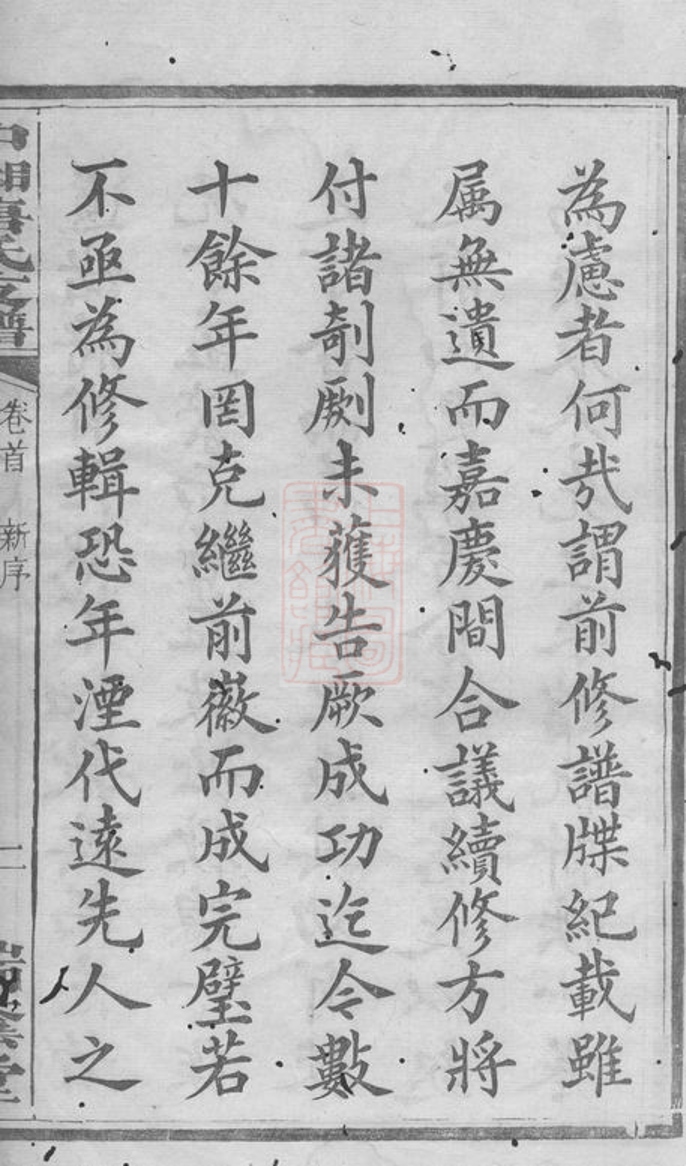 為慮者何哉謂前修譜牒紀載雖
属無遺而嘉慶間合議續修方將
付諸剞劂未獲告厥成功迄今數
十餘年罔克繼前徽而成完璧若
不亟為修輯恐年湮代遠先人之
氏支譜
卷首 新序
二
堂